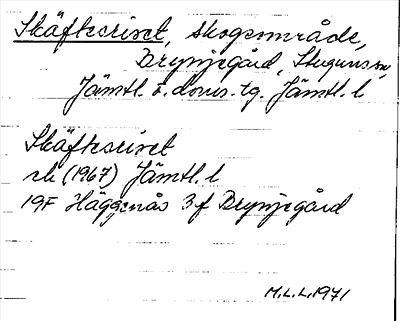 Skäftesriset, skogsområde,
Brynjegård, Stugun sn,
Jämtl. ö. doms. tg. Jämtl. l
Skäftesriset
rk (1967) Jämtl. l
19F Häggenås 3f Brynjegård
M.L.L. 1971